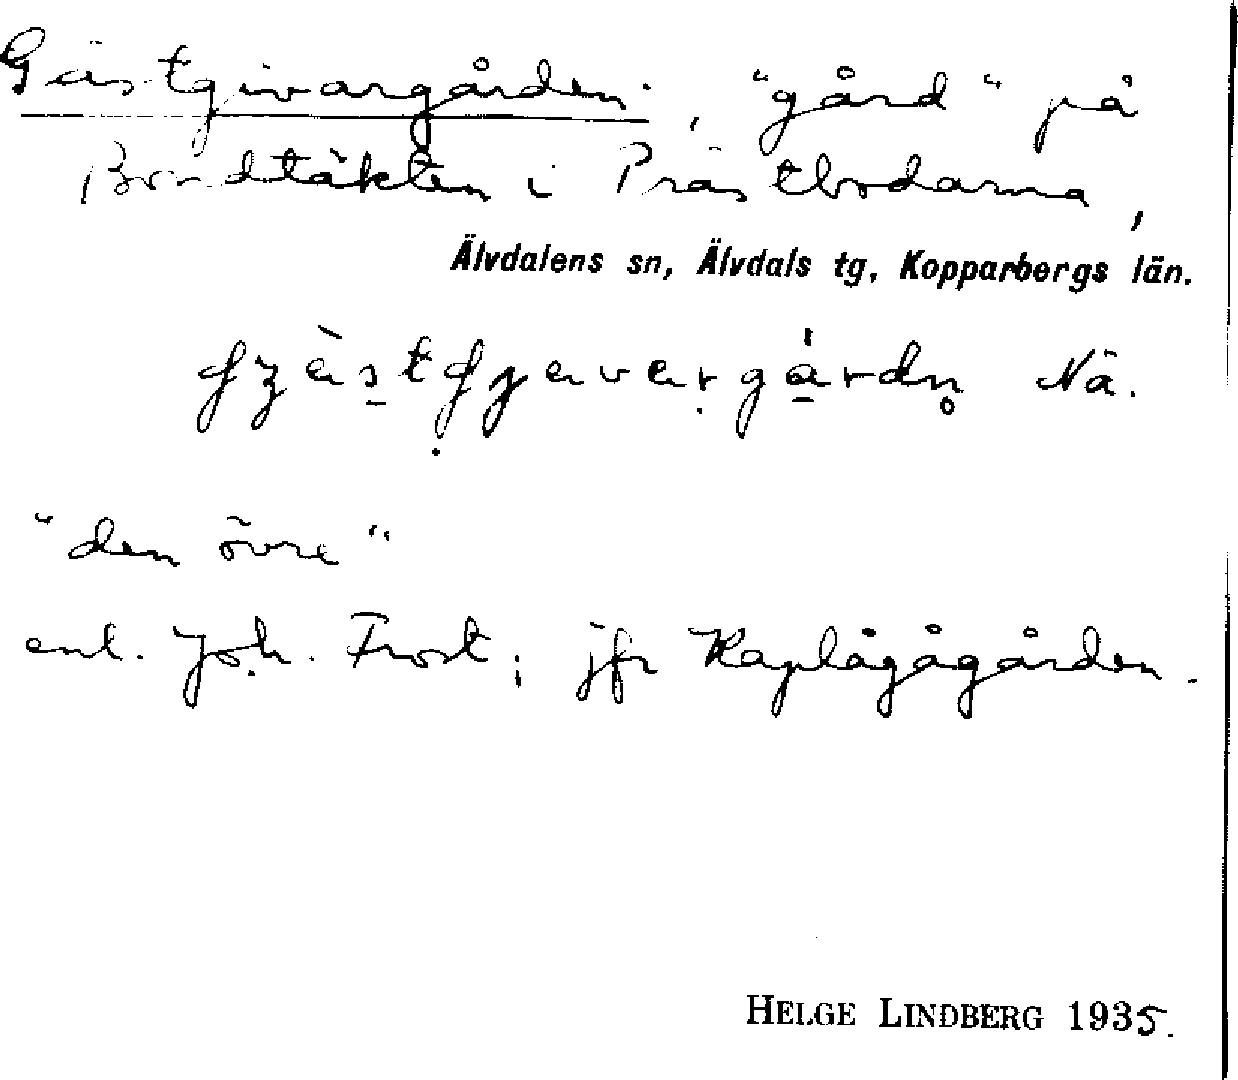 Gästgivargården, "gård" på
Bondtäkten i Prästbodarna,
Älvdalens sn, Älvdals tg, Kopparbergs län.
Nä.
"den övre"
enl. Joh. Frost; jfr Kaplågågården.
HELGE LINDBERG 1935.